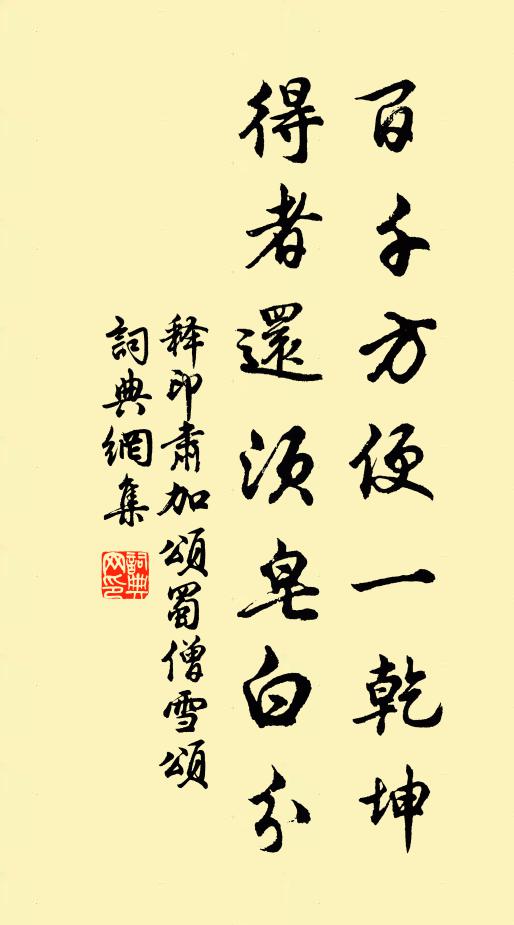 百千方便一乾坤
得者還須皂白分
释印肅加頌蜀僧雪頌
詞典網集
詞典网印